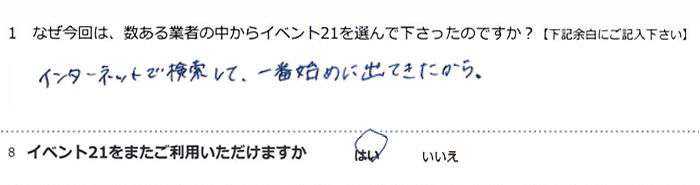 1 なぜ今回は、数ある業者の中からイベント21を選んで下さったのですか？【下記余白にご記入下さい】
インターネットで検索して、一番始めに出てきたから。
8 イベント21をまたご利用いただけますか はい いいえ